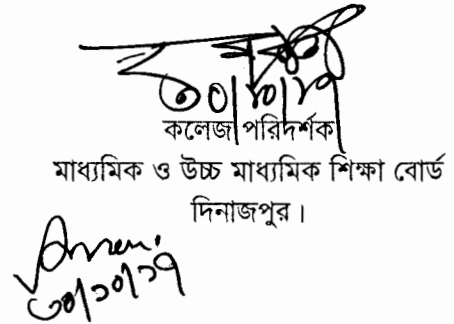 ৩০/১০/১৭
কলেজ পরিদর্শক
মাধ্যমিক ও উচ্চ মাধ্যমিক শিক্ষা বোর্ড
দিনাজপুর।
৩০/১০/১৭